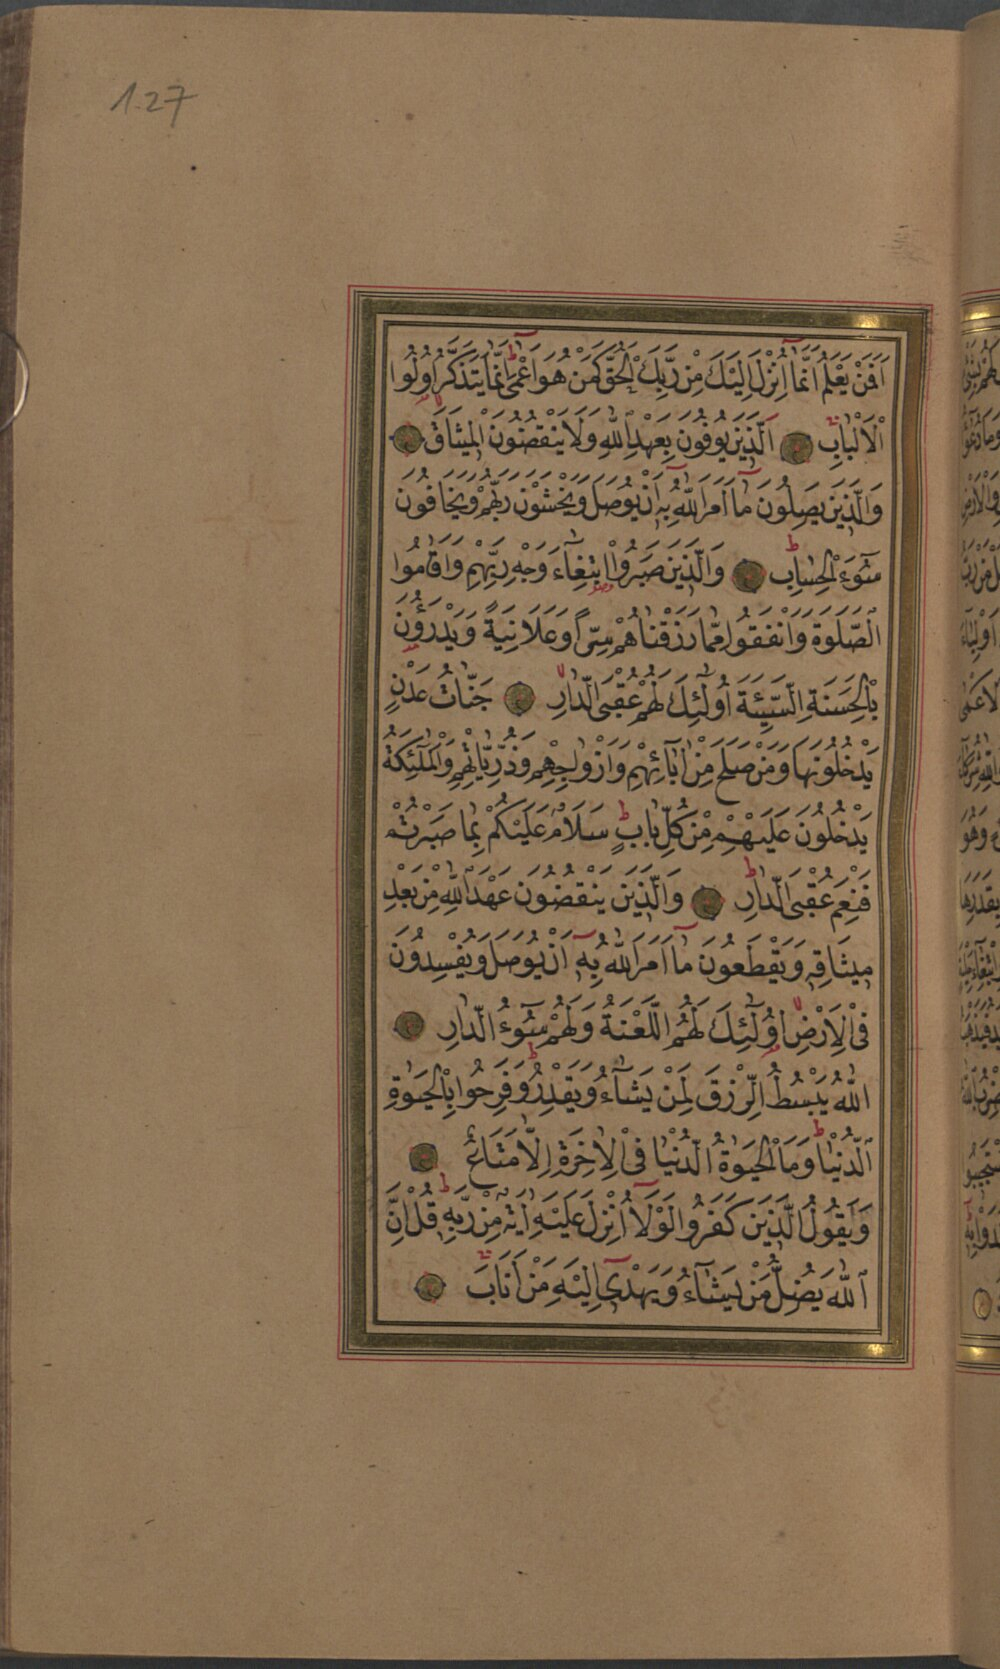 127
اَفَمَنْ يَعْلَمُ اَنَّمَٓا اُنْزِلَ اِلَيْكَ مِنْ رَبِّكَ الْحَقُّ كَمَنْ هُوَ اَعْمٰى اِنَّمَا يَتَذَكَّرُ اُولُوا
الْاَلْبَابِ الَّذِينَ يُوفُونَ بِعَهْدِ اللّٰهِ وَلَا يَنْقُضُونَ الْمِيثَاقَ
وَالَّذِينَ يَصِلُونَ مَٓا اَمَرَ اللّٰهُ بِهٖٓ اَنْ يُوصَلَ وَيَخْشَوْنَ رَبَّهُمْ وَيَخَافُونَ
سُٓوءَ الْحِسَابِ وَالَّذِينَ صَبَرُوا ابْتِغَٓاءَ وَجْهِ رَبِّهِمْ وَاَقَامُوا
الصَّلٰوةَ وَاَنْفَقُوا مِمَّا رَزَقْنَاهُمْ سِرًّا وَعَلَانِيَةً وَيَدْرَؤُنَ
بِالْحَسَنَةِ السَّيِّئَةَ اُولٰٓئِكَ لَهُمْ عُقْبَى الدَّارِ جَنَّاتُ عَدْنٍ
يَدْخُلُونَهَا وَمَنْ صَلَحَ مِنْ اٰبَائِهِمْ وَاَزْوَاجِهِمْ وَذُرِّيَّاتِهِمْ وَالْمَلٰٓئِكَةُ
يَدْخُلُونَ عَلَيْهِمْ مِنْ كُلِّ بَابٍ سَلَامٌ عَلَيْكُمْ بِمَا صَبَرْتُمْ
فَنِعْمَ عُقْبَى الدَّارِ وَالَّذِينَ يَنْقُضُونَ عَهْدَ اللّٰهِ مِنْ بَعْدِ
مِيثَاقِهٖ وَيَقْطَعُونَ مَٓا اَمَرَ اللّٰهُ بِهٖٓ اَنْ يُوصَلَ وَيُفْسِدُونَ
فِى الْاَرْضِ اُولٰٓئِكَ لَهُمُ اللَّعْنَةُ وَلَهُمْ سُٓوءُ الدَّارِ
اَللّٰهُ يَبْسُطُ الرِّزْقَ لِمَنْ يَشَٓاءُ وَيَقْدِرُ وَفَرِحُوا بِالْحَيٰوةِ
الدُّنْيَا وَمَا الْحَيٰوةُ الدُّنْيَا فِى الْاٰخِرَةِ اِلَّا مَتَاعٌ
وَيَقُولُ الَّذِينَ كَفَرُوا لَوْلَٓا اُنْزِلَ عَلَيْهِ اٰيَةٌ مِنْ رَبِّهٖ قُلْ اِنَّ
اللّٰهَ يُضِلُّ مَنْ يَشَٓاءُ وَيَهْدِٓى اِلَيْهِ مَنْ اَنَابَ